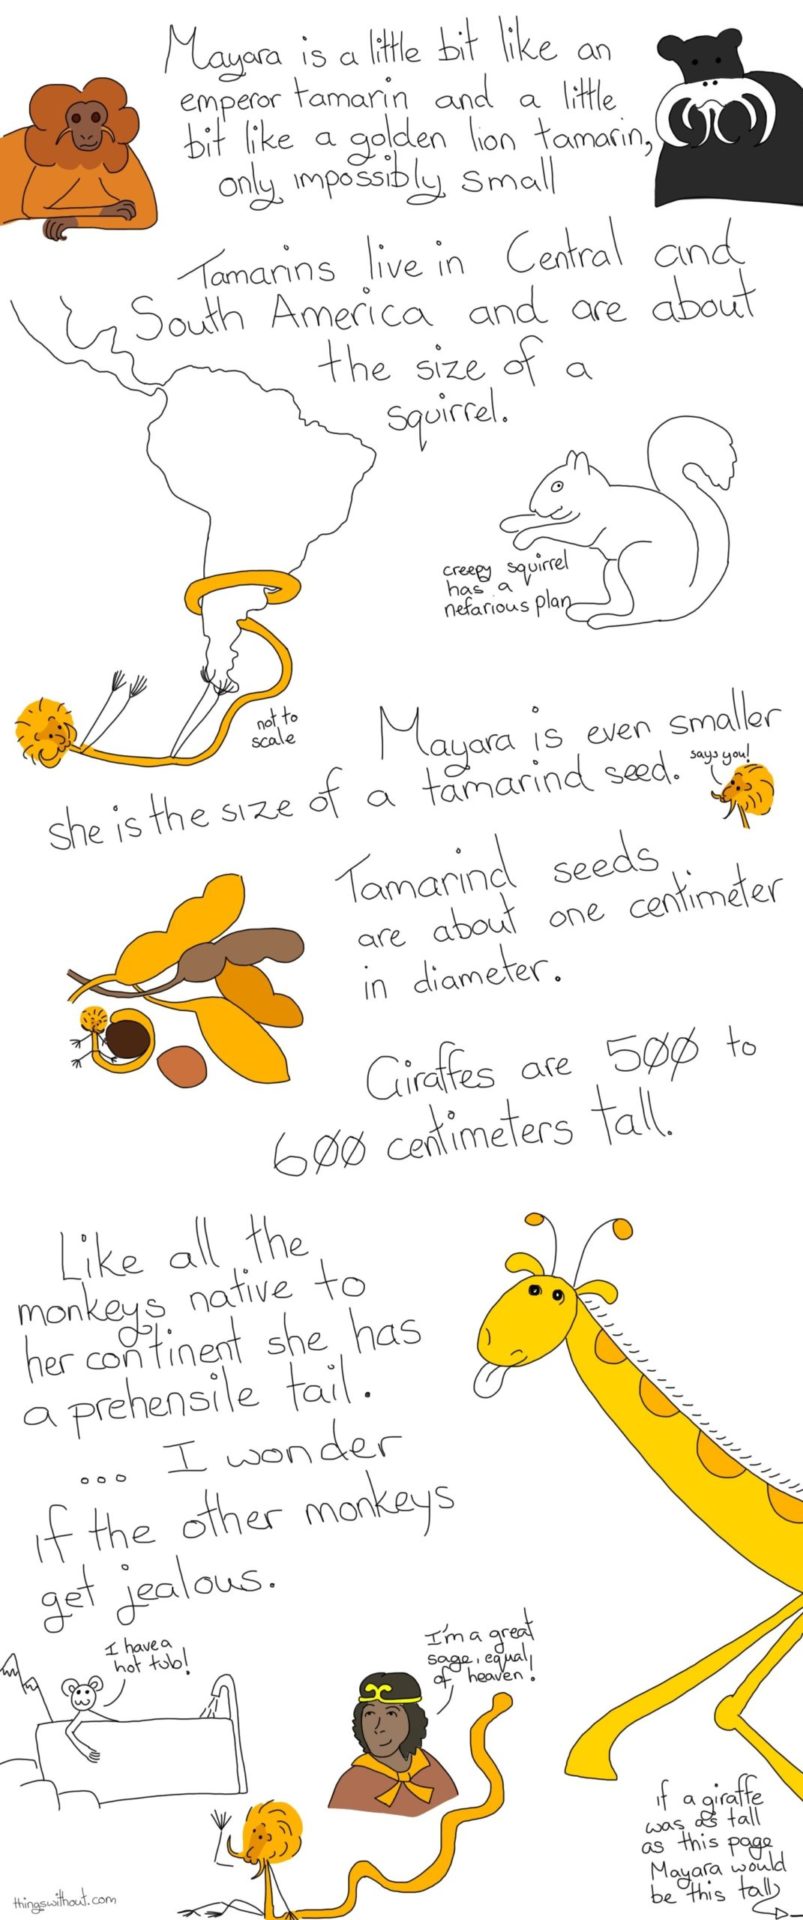 Mayara is a little bit like an
emperor tamarin and a little
bit like a golden lion tamarin,
only impossibly small
Tamarins live in Central and
South America and are about
the size of a
squirrel.
creepy squirrel
has a
nefarious plan
not to
scale
Mayara is even smaller
says you!
she is the size of a tamarind seed.
Tamarind seeds
are about one centimeter
in diameter.
Giraffes are 500 to
600 centimeters tall.
Like all the
monkeys native to
her continent she has
a prehensile tail.
... I wonder
if the other monkeys
get jealous.
I have a
hot tub!
I'm a great
sage, equal
of heaven!
if a giraffe
was as tall
as this page
Mayara would
be this tall
thingswithout.com